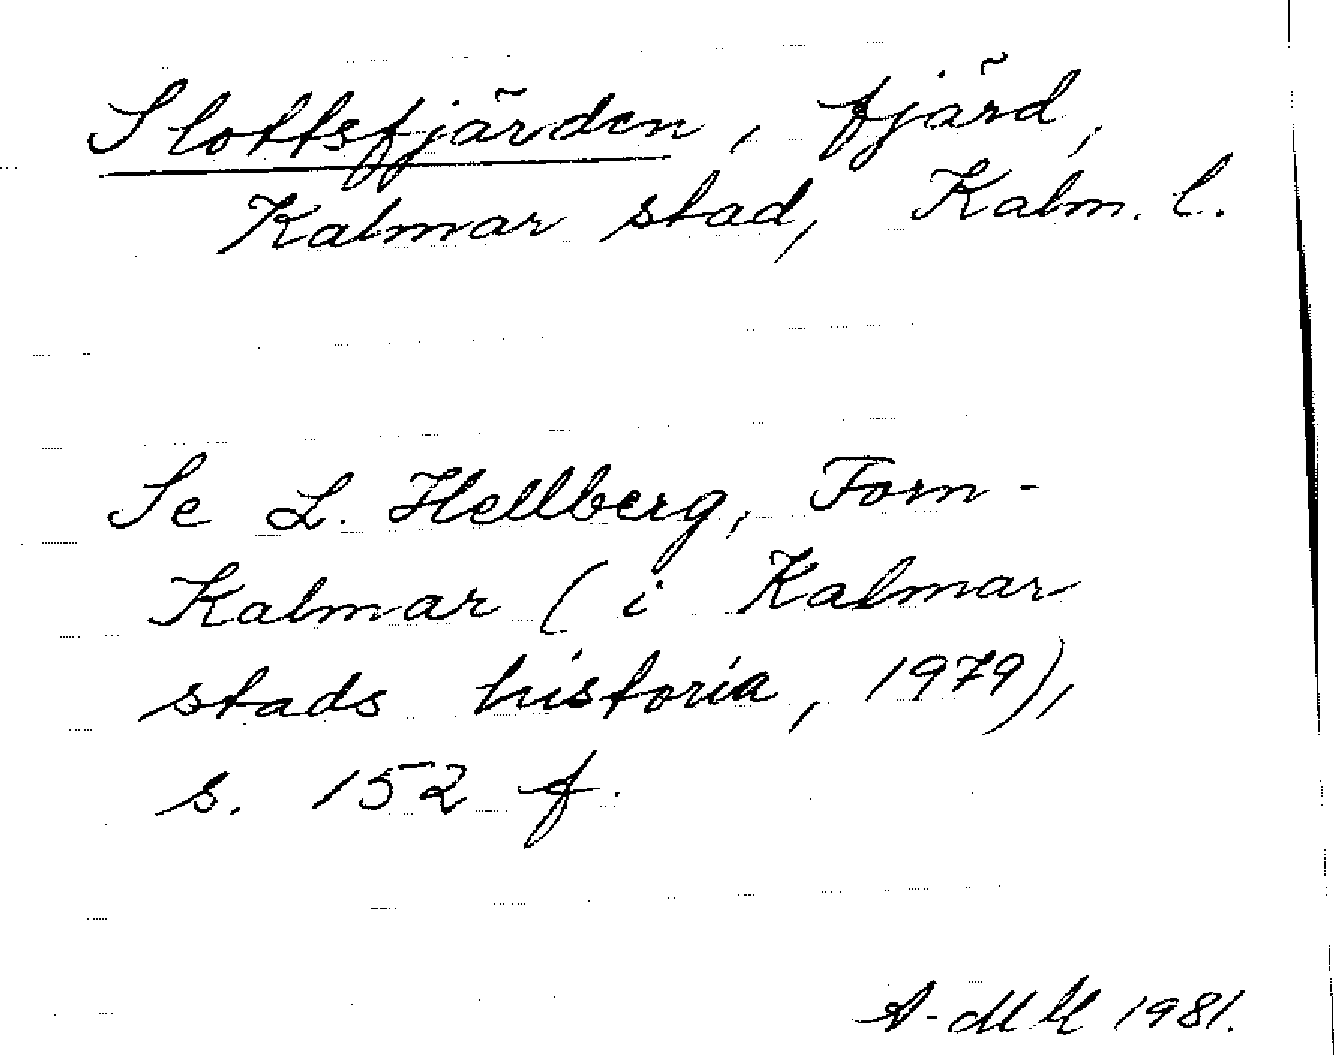 Slottsfjärden, fjärd,
Kalmar stad, Kalm. l.
Se L. Hellberg, Forn-
Kalmar (i Kalmar
stads historia, 1979),
s. 152 f.
A-MH 1981.